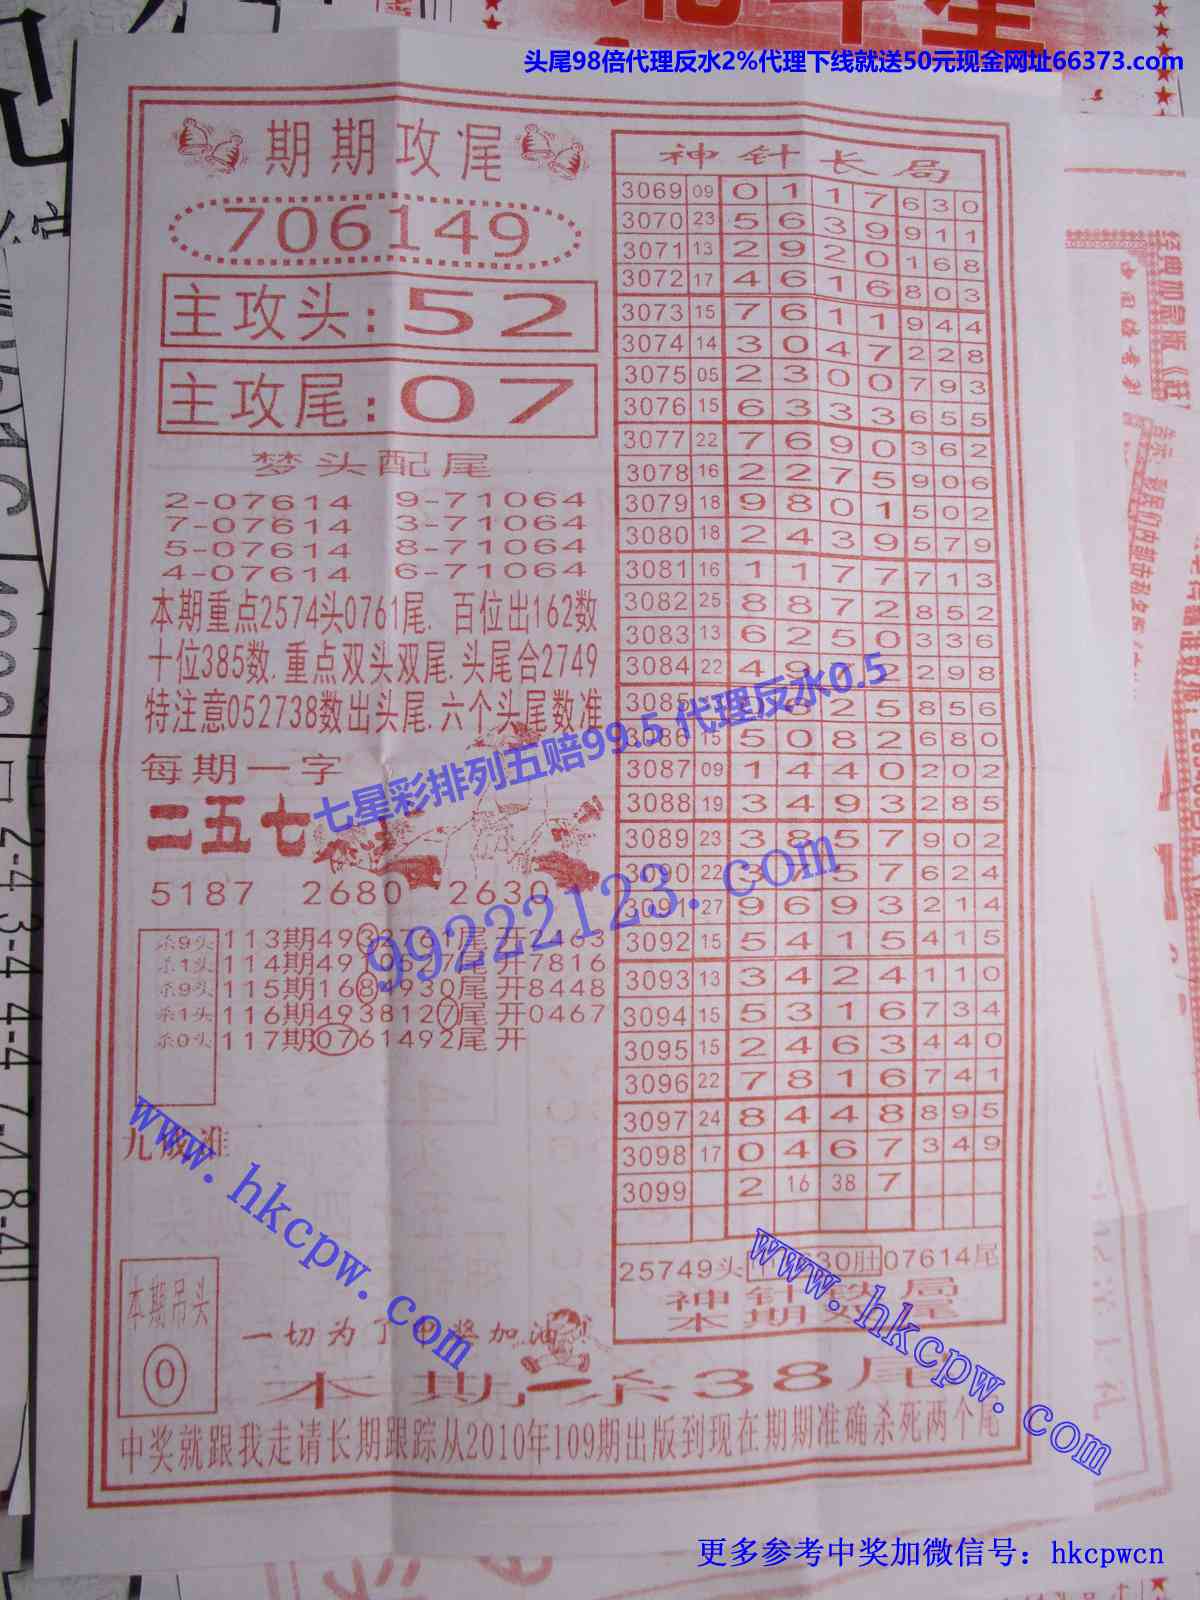 头尾98倍代理反水2%代理下线就送50元现金网址66373.com
期期攻尾
706149
主攻头:52
主攻尾:07
梦头配尾
2-07614 9-71064
7-07614 3-71064
5-07614 8-71064
4-07614 6-71064
本期重点2574头0761尾.百位出162数
十位385数.重点双头双尾.头尾合2749
特注意052738数出头尾.六个头尾数准
每期一字
二五七
5187 2680 2630
杀9头 113期4932761尾开2463
杀1头 114期4910527尾开7816
杀9头 115期1684930尾开8448
杀1头 116期4938127尾开0467
杀0头 117期0761492尾开
本期吊头
0
一切为了
加油!
本期杀38尾
中奖就跟我走请长期跟踪从2010年109期出版到现在期期准确杀死两个尾
神针长局
3069 09 0 1 1 7 6 3 0
3070 23 5 6 3 9 9 1 1
3071 13 2 9 2 0 1 6 8
3072 17 4 6 1 6 8 0 3
3073 15 7 6 1 1 9 4 4
3074 14 3 0 4 7 2 2 8
3075 05 2 3 0 0 7 9 3
3076 15 6 3 3 3 6 5 5
3077 22 7 6 9 0 3 6 2
3078 16 2 2 7 5 9 0 6
3079 18 9 8 0 1 5 0 2
3080 18 2 4 3 9 5 7 9
3081 16 1 1 7 7 7 1 3
3082 25 8 8 7 2 8 5 2
3083 13 6 2 5 0 3 3 6
3084 22 4 9 7 2 2 9 8
3085 8 2 5 8 5 6
3086 15 5 0 8 2 6 8 0
3087 09 1 4 4 0 2 0 2
3088 19 3 4 9 3 2 8 5
3089 23 3 8 5 7 9 0 2
3090 22 3 7 5 7 6 2 4
3091 27 9 6 9 3 2 1 4
3092 15 5 4 1 5 4 1 5
3093 13 3 4 2 4 1 1 0
3094 15 5 3 1 6 7 3 4
3095 15 2 4 6 3 4 4 0
3096 22 7 8 1 6 7 4 1
3097 24 8 4 4 8 8 9 5
3098 17 0 4 6 7 3 4 9
3099 2 16 38 7
25749头 30肚 07614尾
神针铁局
本期双尾
七星彩排列五赔99.5 代理反水0.5
99222123.com
www.hkcpw.com
www.hkcpw.com
更多参考中奖加微信号：hkcpwcn